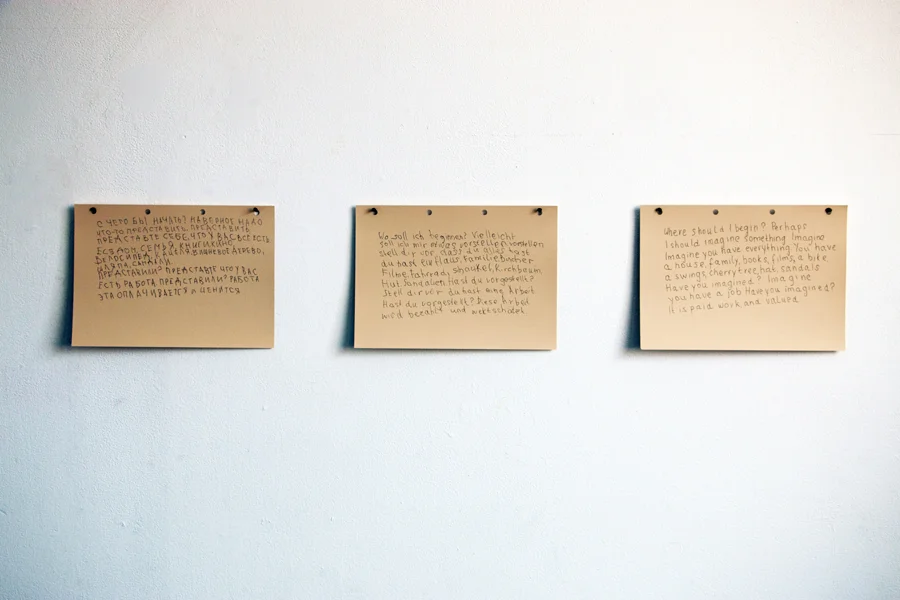 С ЧЕГО БЫ НАЧАТЬ? НАВЕРНОЕ НАДО
ЧТО-ТО ПРЕДСТАВИТЬ. ПРЕДСТАВИТЬ
ПРЕДСТАВЬТЕ СЕБЕ, ЧТО У ВАС ВСЕ ЕСТЬ
ЕСТЬ ДОМ, СЕМЬЯ, КНИГИ, КИНО
ВЕЛОСИПЕД, КАЧЕЛИ, ВИШНЕВОЕ ДЕРЕВО,
ШЛЯПА, САНДАЛИ
ПРЕДСТАВИЛИ? ПРЕДСТАВЬТЕ ЧТО У ВАС
ЕСТЬ РАБОТА. ПРЕДСТАВИЛИ? РАБОТА
ЭТА ОПЛАЧИВАЕТСЯ И ЦЕНИТСЯ
Wo soll ich beginnen? Vielleicht
soll ich mir etwas vorstellen vorstellen
stell dir vor dass du alles hast
du hast ein Haus, Familie Bücher
Filme, Fahrrad, shaukel, Kirchbaum
Hut, Sandalien. Hast du vorgestellt?
Stell dir vor du hast eine Arbeit
Hast du vorgestellt? Diese Arbeit
wird bezahlt und
Where should I begin? Perhaps
I should imagine something. Imagine
Imagine you have everything. You have
a house, family, books, films, a bike
a swings, cherry tree, hat, sandals
Have you imagined? Imagine
you have a job. Have you imagined?
It is paid work and valued